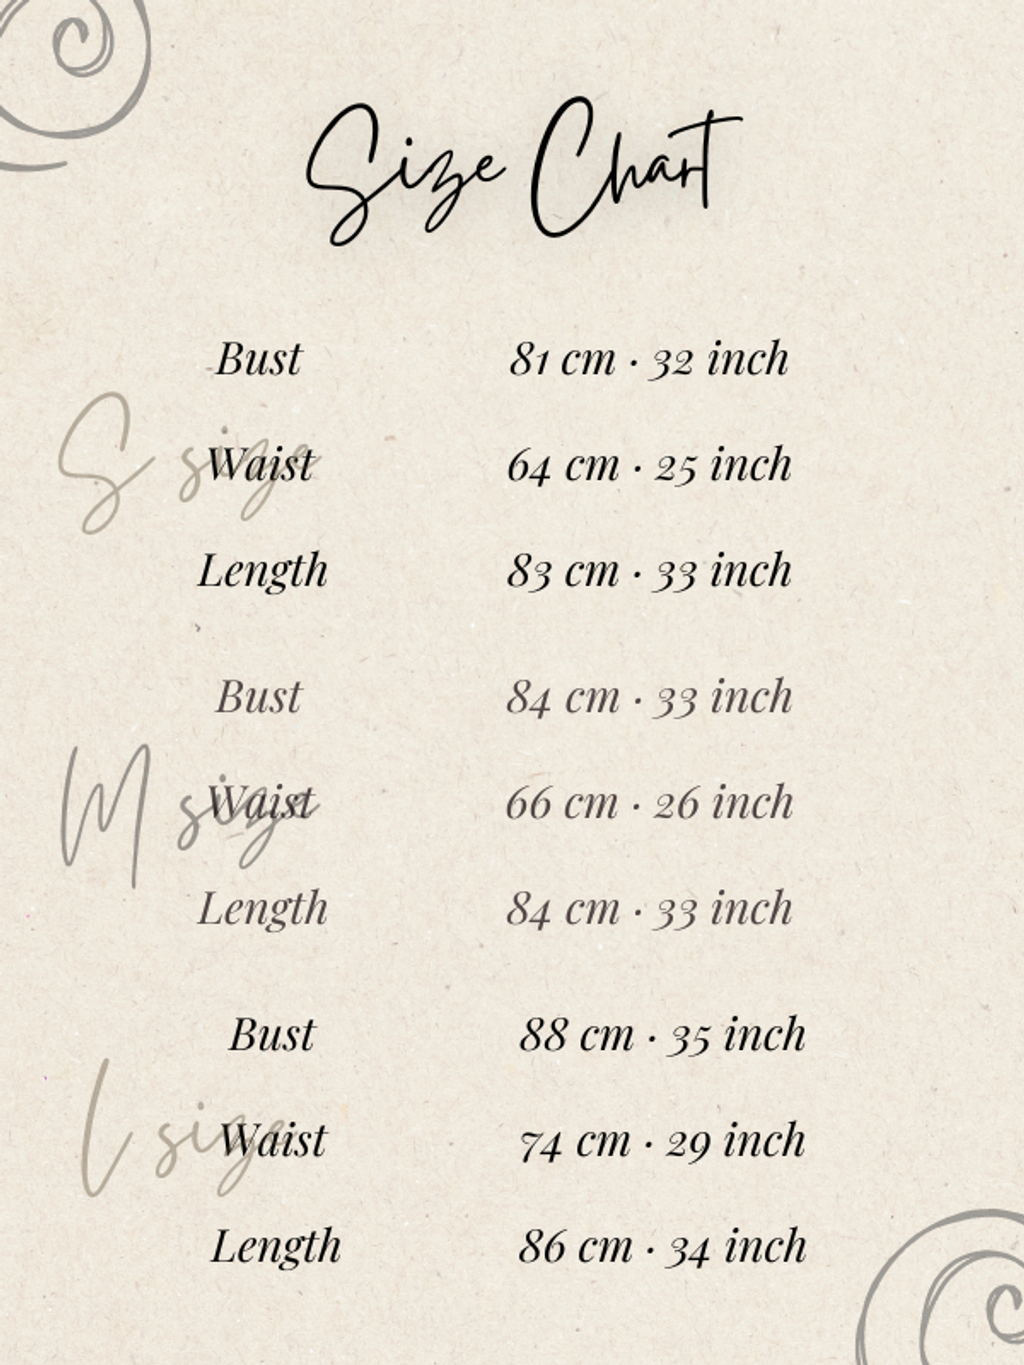 Size Chart
Bust 81 cm · 32 inch
S size
Waist 64 cm · 25 inch
Length 83 cm · 33 inch
Bust 84 cm · 33 inch
M size
Waist 66 cm · 26 inch
Length 84 cm · 33 inch
Bust 88 cm · 35 inch
L size
Waist 74 cm · 29 inch
Length 86 cm · 34 inch